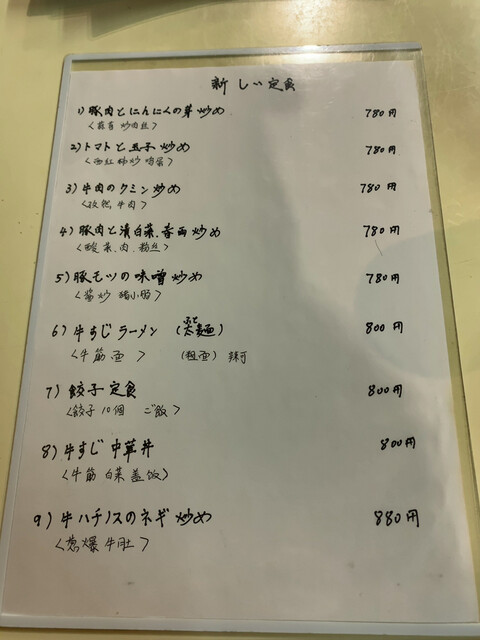 新しい定食
1) 豚肉とにんにくの芽炒め 780円
<蒜苔炒肉丝>
2) トマトと玉子炒め 780円
<西红柿炒鸡蛋>
3) 牛肉のクミン炒め 780円
<孜然牛肉>
4) 豚肉と漬白菜.春雨炒め 780円
<酸菜.肉.粉丝>
5) 豚モツの味噌炒め 780円
<酱炒猪小肠>
6) 牛すじラーメン (太麺) 800円
<牛筋面> (粗面)
7) 餃子定食 800円
<餃子10個 ご飯>
8) 牛すじ中華丼 800円
<牛筋白菜盖饭>
9) 牛ハチノスのネギ炒め 880円
<葱爆牛肚>